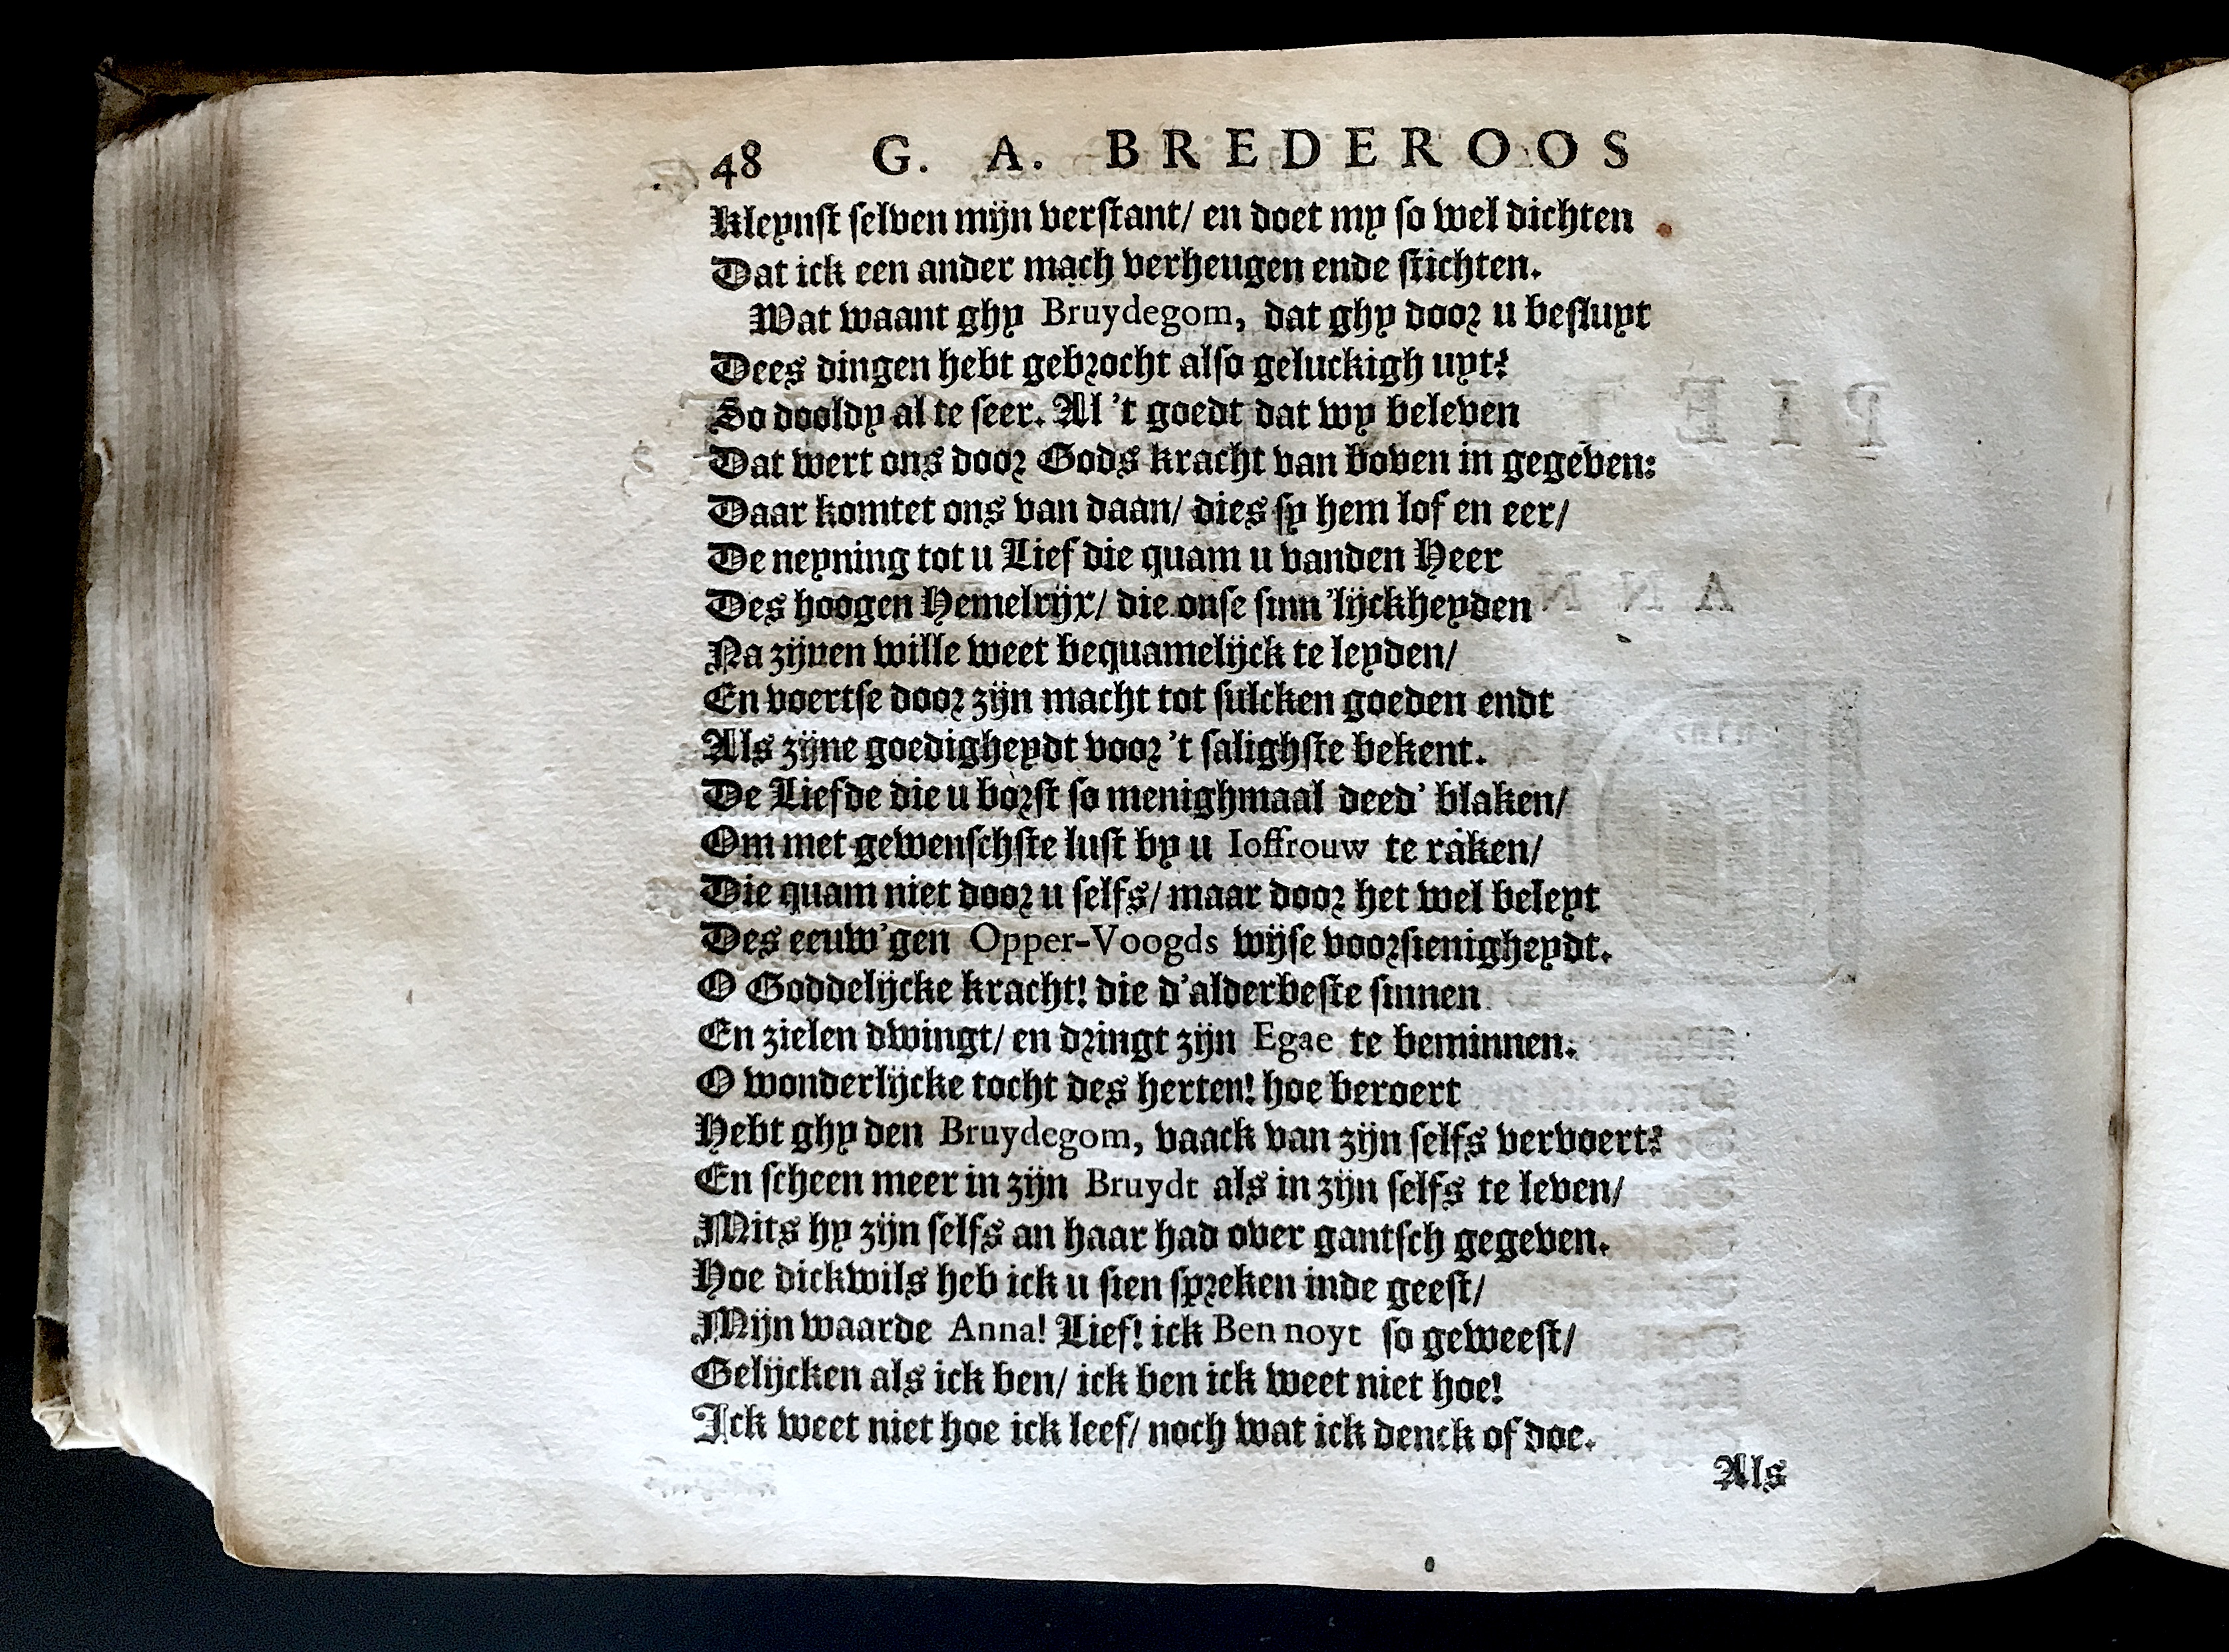 48 G. A. BREDEROOS
Kleynst selven mijn verstant/ en doet my so wel dichten
Dat ick een ander mach verheugen ende stichten.
Wat waant ghy Bruydegom, dat ghy door u besluyt
Dees dingen hebt gebrocht also geluckigh uyt?
So dooldy al te seer. Al 't goedt dat wy beleven
Dat wert ons door Gods kracht van boven in gegeven:
Daar komtet ons van daan/ dies sy hem lof en eer/
De neyning tot u Lief die quam u vanden Heer
Des hoogen Hemelrijx/ die onse sinn'lijckheyden
Na zijnen wille weet bequamelijck te leyden/
En voertse door zijn macht tot sulcken goeden endt
Als zijne goedigheydt voor 't salighste bekent.
De Liefde die u borst so menighmaal deed' blaken/
Om met gewenschste lust by u Ioffrouw te raken/
Die quam niet door u selfs/ maar door het wel beleyt
Des eeuw'gen Opper-Voogds wijse voorsienigheydt.
O Goddelijcke kracht! die d'alderbeste sinnen
En zielen dwingt/ en dringt zijn Egae te beminnen.
O wonderlijcke tocht des herten! hoe beroert
Hebt ghy den Bruydegom, vaack van zijn selfs vervoert?
En scheen meer in zijn Bruydt als in zijn selfs te leven/
Mits hy zijn selfs an haar had over gantsch gegeven.
Hoe dickwils heb ick u sien spreken inde geest/
Mijn waarde Anna! Lief! ick Ben noyt so geweest/
Gelijcken als ick ben/ ick ben ick weet niet hoe!
Ick weet niet hoe ick leef/ noch wat ick denck of doe.
Als